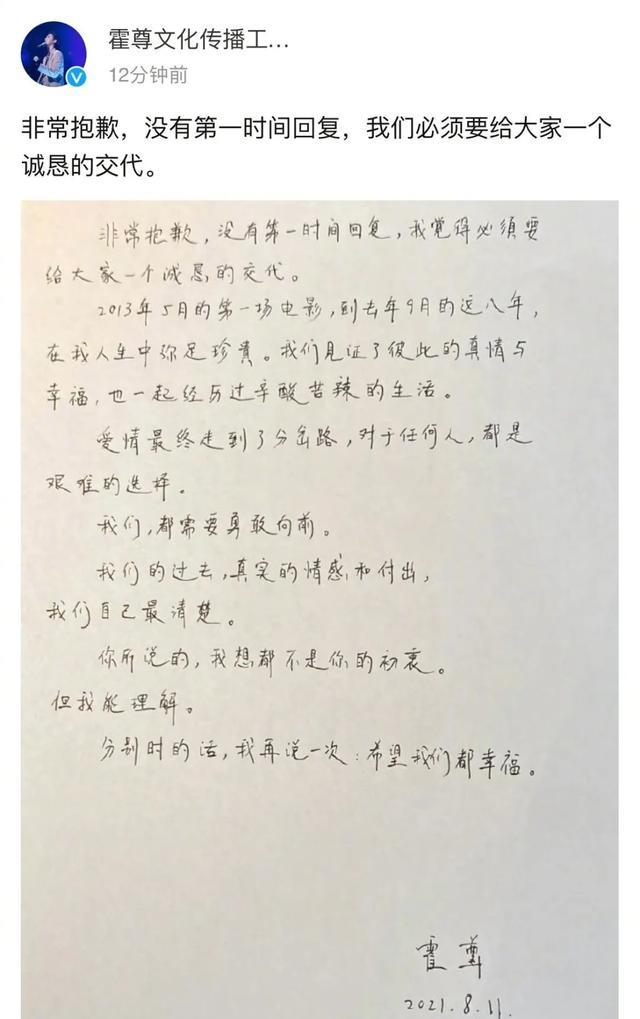 霍尊文化传播工...
12分钟前
非常抱歉，没有第一时间回复，我们必须要给大家一个
诚恳的交代。
非常抱歉，没有第一时间回复，我觉得必须要
给大家一个诚恳的交代。
2013年5月的第一场电影，到去年9月的这八年，
在我人生中弥足珍贵。我们见证了彼此的真情与
幸福，也一起经历过辛酸苦辣的生活。
爱情最终走到了分岔路，对于任何人，都是
艰难的选择。
我们，都需要勇敢向前。
我们的过去，真实的情感和付出，
我们自己最清楚。
你所说的，我想都不是你的初衷。
但我能理解。
分别时的话，我再说一次：希望我们都幸福。
霍尊
2021.8.11.